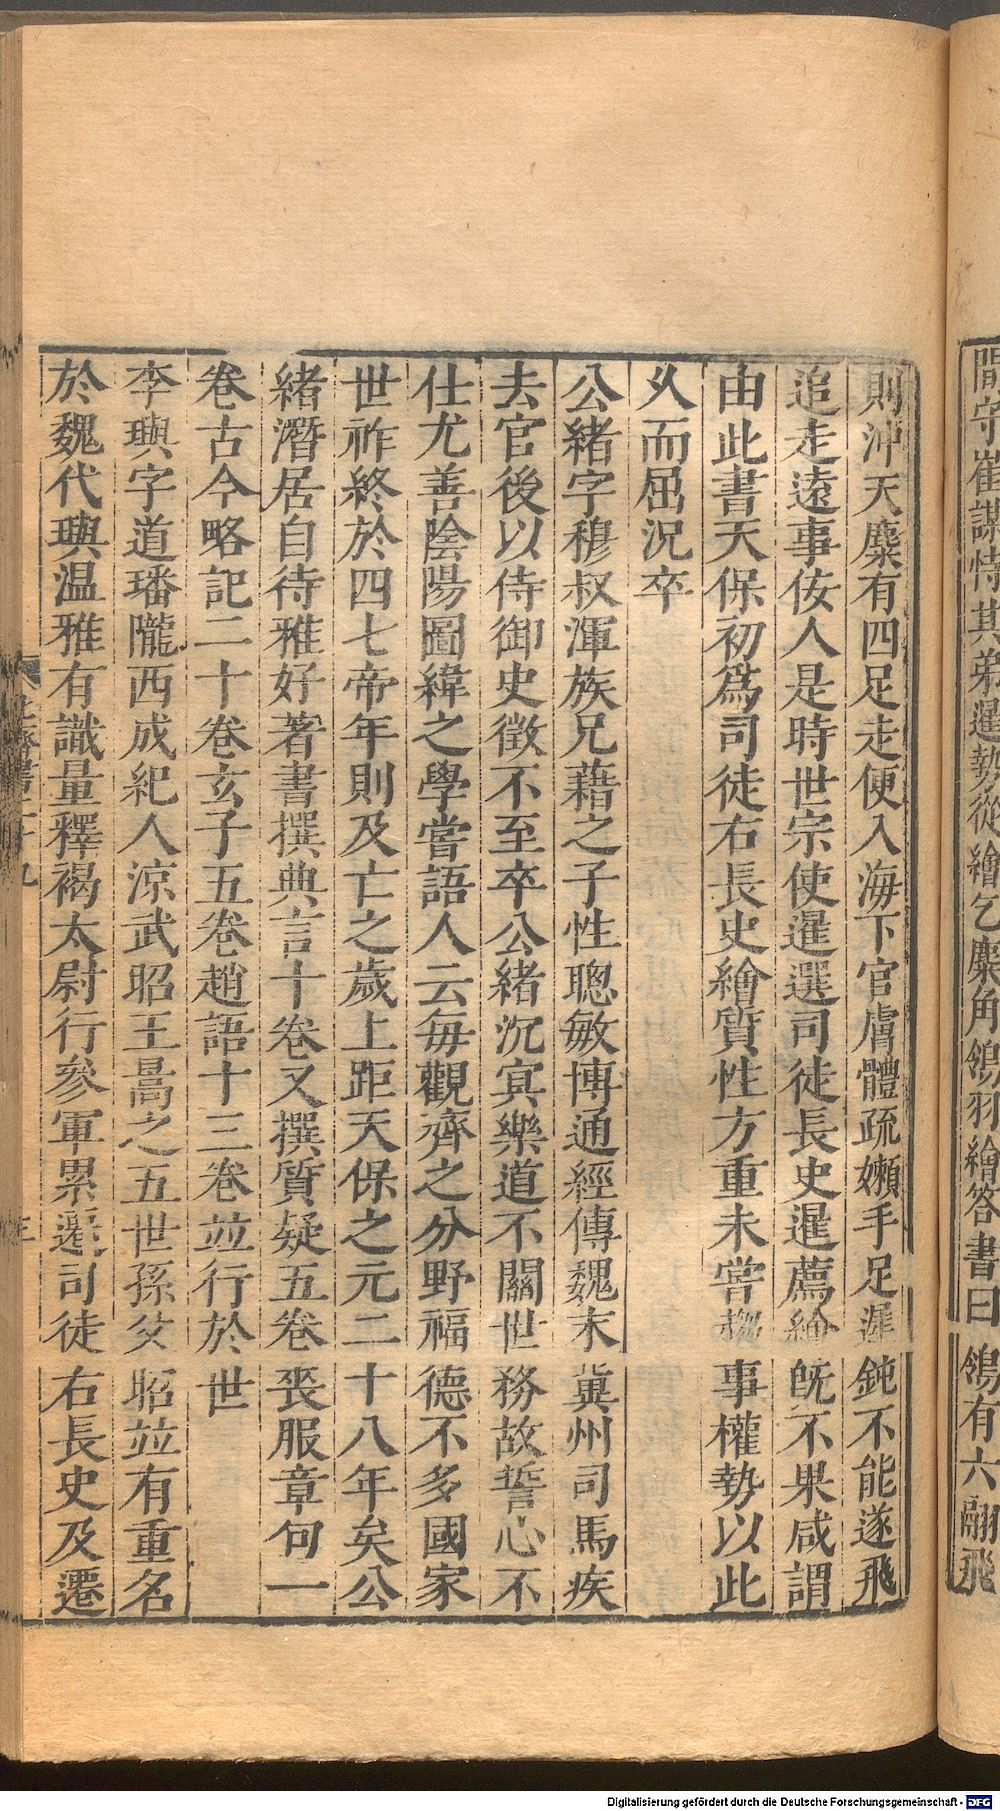 間守崔謀恃其弟暹勢從繪乞麋角鴒羽繪答書曰鴒有六翮飛
則沖天麋有四足走便入海下官膚體疏嬾手足遲鈍不能遂飛
追走遠事佞人是時世宗使暹選司徒長史暹薦繪既不果咸謂
由此書天保初爲司徒右長史繪質性方重未嘗趨事權勢以此
乆而屈況卒
公緒字穆叔渾族兄藉之子性聰敏博通經傳魏末冀州司馬疾
去官後以侍御史徵不至卒公緒沉冥樂道不關世務故誓心不
仕尤善陰陽圖緯之學嘗語人云每觀齊之分野福德不多國家
世祚終於四七帝年則及亡之歲上距天保之元二十八年矣公
緒潛居自待雅好著書撰典言十卷又撰質疑五卷喪服章句一
卷古今略記二十卷玄子五卷趙語十三卷並行於世
李璵字道璠隴西成紀人涼武昭王暠之五世孫父韶並有重名
於魏代璵温雅有識量釋褐太尉行參軍累遷司徒右長史及遷
北齊書二十九
三
Digitalisierung gefördert durch die Deutsche Forschungsgemeinschaft - DFG